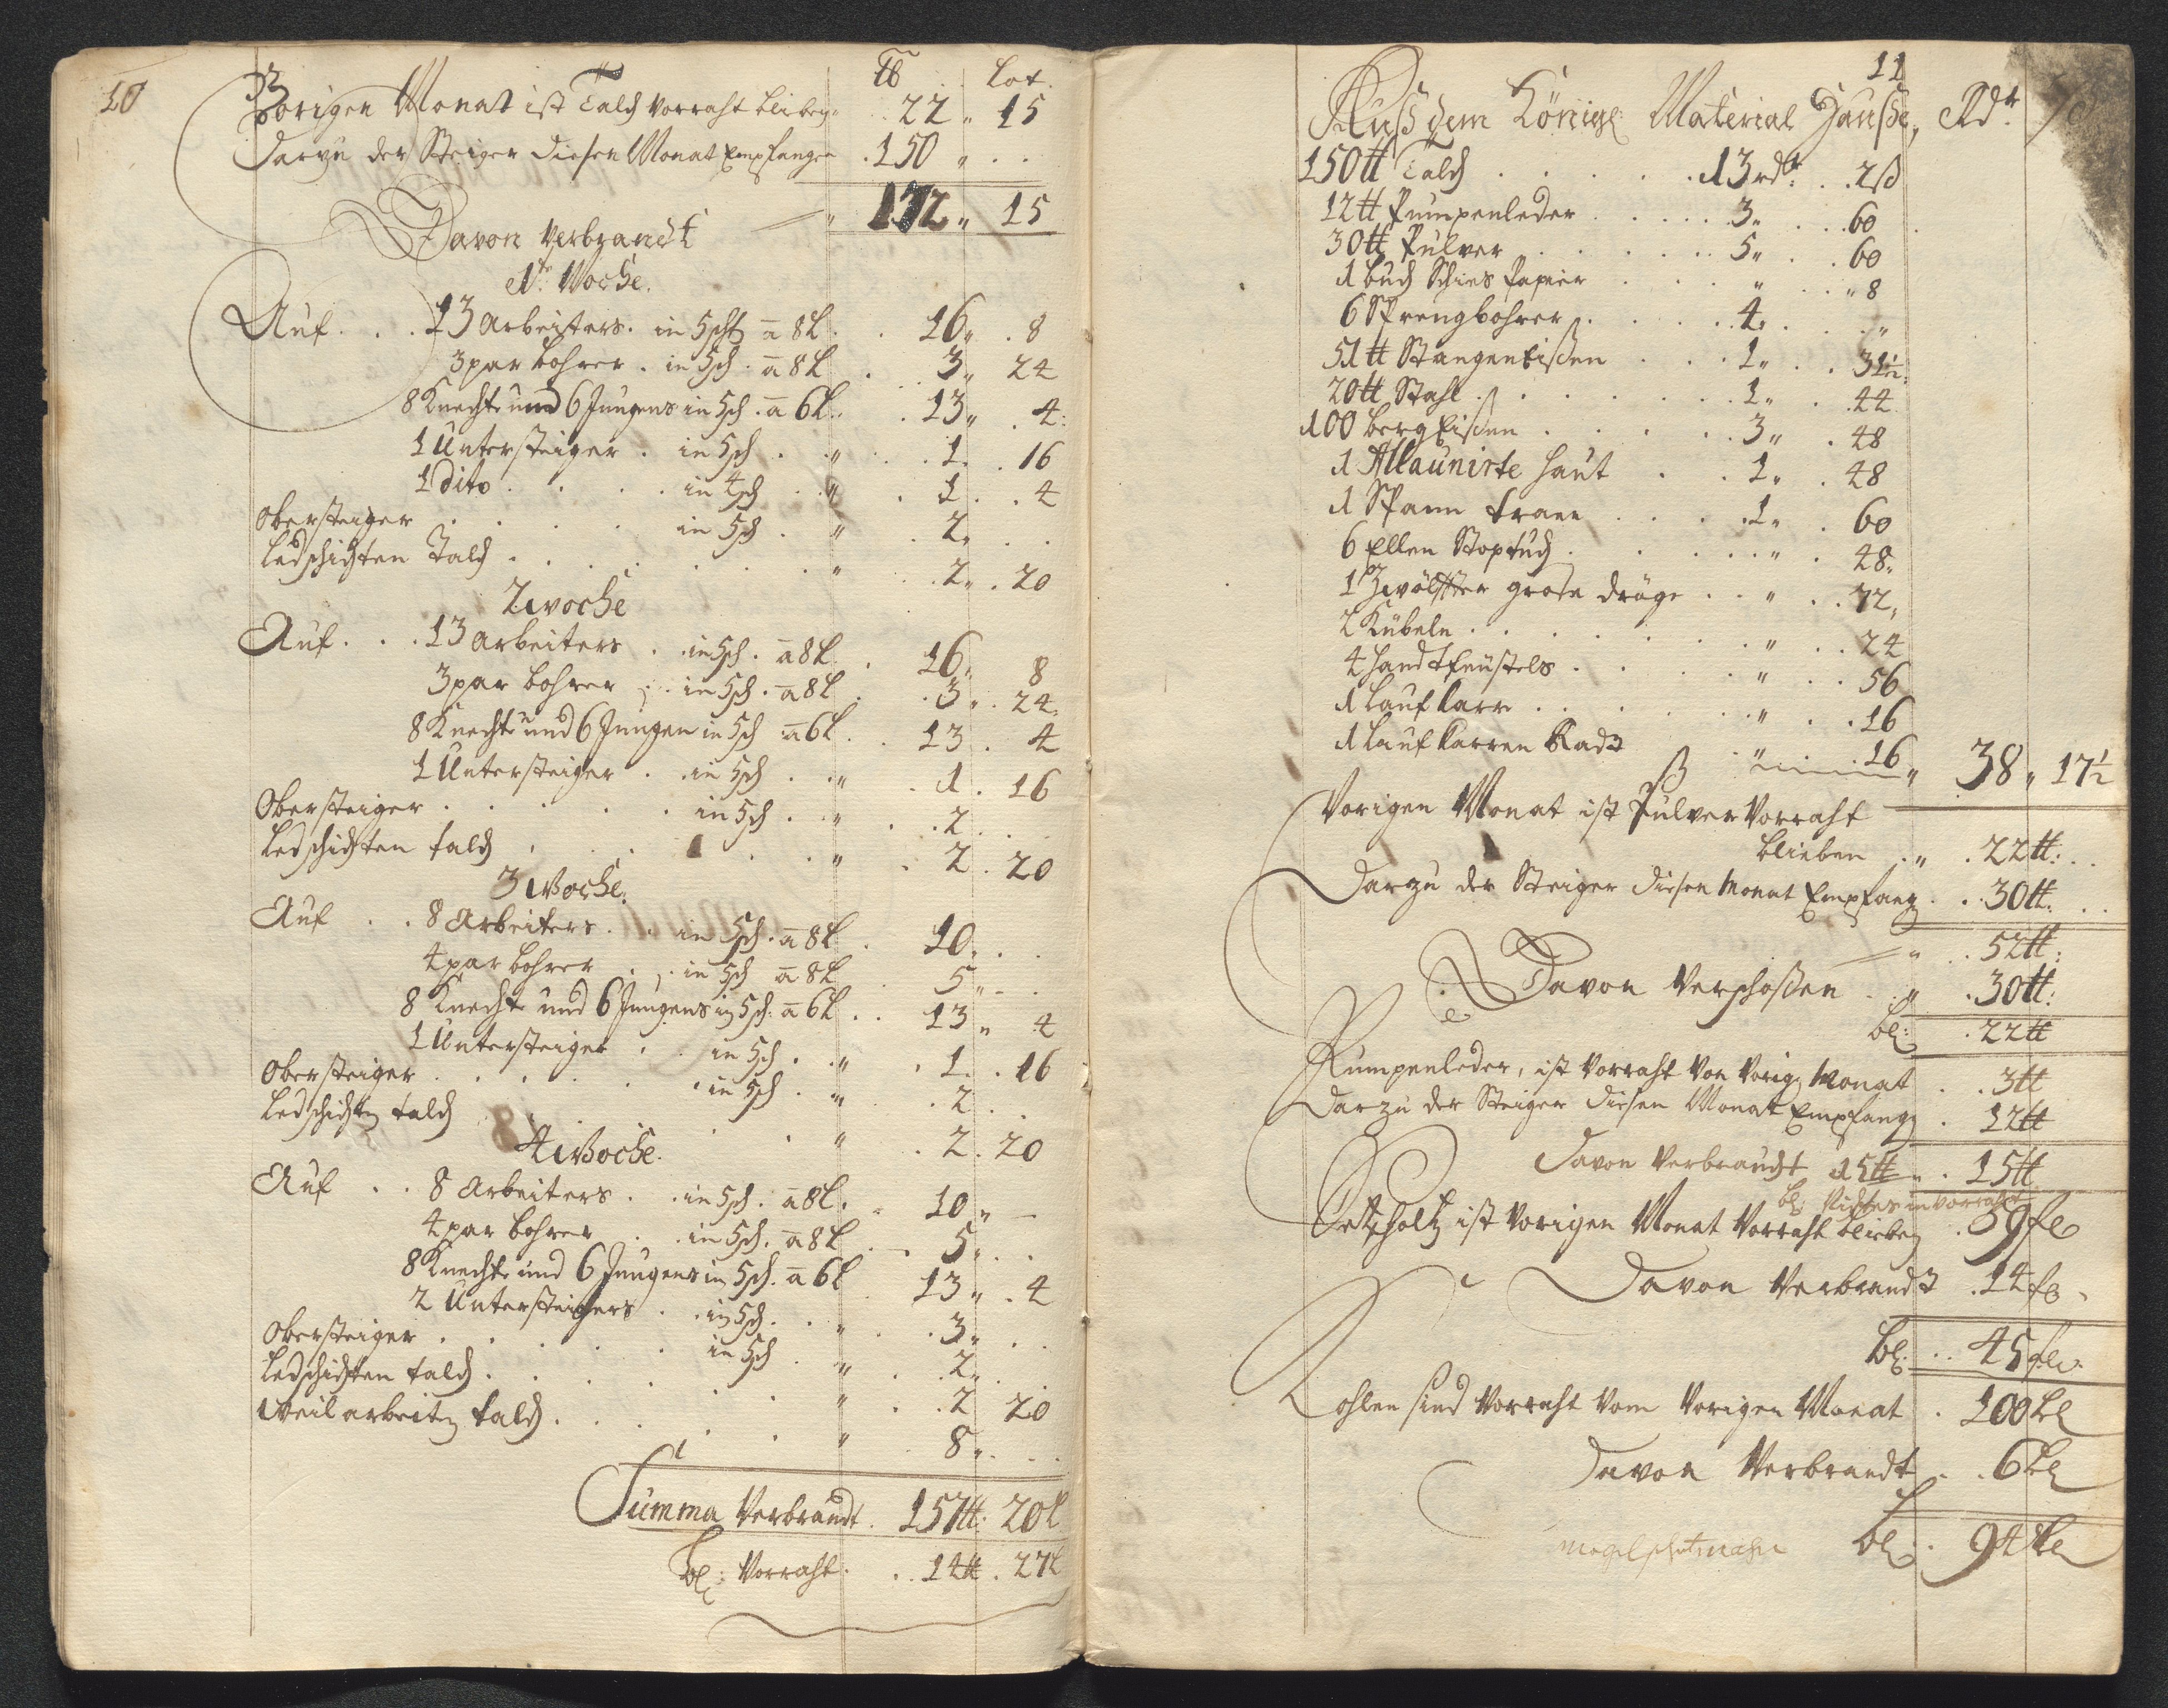 10
℔ Lot
Vorigen Monat ist Talch Vorraht blieben 22 " 15
Darzu der Steiger diesen Monat Empfangen 150 "
172 " 15
Davon Verbrandt
1te Woche.
Auf 13 Arbeiters in 5 sch ā 8 L 16 " 8
3 par Bohrer in 5 sch ā 8 L 3 " 24
8 Knechte und 6 Jungens in 5 sch ā 6 L 13 " 4
1 Untersteiger in 5 sch " 1 16
1 dito in 4 sch " 1 4
Obersteiger in 5 sch " 2 "
Ledschichten Talch " 2 " 20
2 Woche
Auf 13 Arbeiters in 5 sch ā 8 L 16 " 8
3 par Bohrer in 5 sch ā 8 L 3 " 24
8 Knechte und 6 Jungen in 5 sch ā 6 L 13 4
1 Untersteiger in 5 sch " 1 16
Obersteiger in 5 sch " 2
Ledschichten talch " 2 20
3 Woche.
Auf 8 Arbeiters in 5 sch ā 8 L 10
4 par Bohrer in 5 sch ā 8 L 5 "
8 Knecht und 6 Jungens in 5 sch ā 6 L 13 " 4
1 Untersteiger in 5 sch " 1 16
Obersteiger in 5 sch " 2
Ledschichten talch " 2 20
4 Woche.
Auf 8 Arbeiters in 5 sch ā 8 L 10 " –
4 par Bohrer in 5 sch ā 8 L 5 "
8 Knechte und 6 Jungens in 5 sch ā 6 L 13 " 4
2 Untersteigers in 5 sch " 3 "
Obersteiger in 5 sch " 2 "
Ledschichten talch " 2 20
Weil arbeiten talch " 8 "
Summa Verbrandt 157 ℔ 20 L
bl: Vorraht 14 ℔ 27 L
11
Auß dem Königl: Material Hauße, Rdr
150 ℔ Talch 13 rdr 2 ß
12 ℔ Pumpenleder 3 " 60
30 ℔ Pulver 5 " 60
1 buch Schies Papier " 8
6 Sprengbohrer 4 " "
51 ℔ StangenEißen 1 " 31½
20 ℔ Stahl 1 " 44
100 BergEißen 3 " 48
1 Allaunirte haut 1 " 48
1 Spann trann 1 " 60
6 Ellen Stoptuch " 48
1 Zwölffter große dröge " 72
2 Kübeln " 24
4 handtfeustels " 56
1 Lauf Karr " 16
1 Lauf Karren Radt " 16 " 38 " 17½
Vorigen Monat ist Pulver Vorraht
blieben " 22 ℔
Darzu der Steiger diesen Monat Empfang 30 ℔
" 52 ℔
Davon Verschoßen " 30 ℔
bl: 22 ℔
Pumpenleder, ist Vorraht Von Vorig Monat 3 ℔
Darzu der Steiger diesen Monat Empfang 12 ℔
Davon Verbraucht 15 ℔ 15 ℔
bl: Nichtes in Vorraht
Setzholtz ist Vorigen Monat Vorraht blieben 59 fl
Davon Verbrandt 14 f
bl: 45
Kohlen sind Vorraht Vom Vorigen Monat 100
Davon Verbrandt 6
bl 94